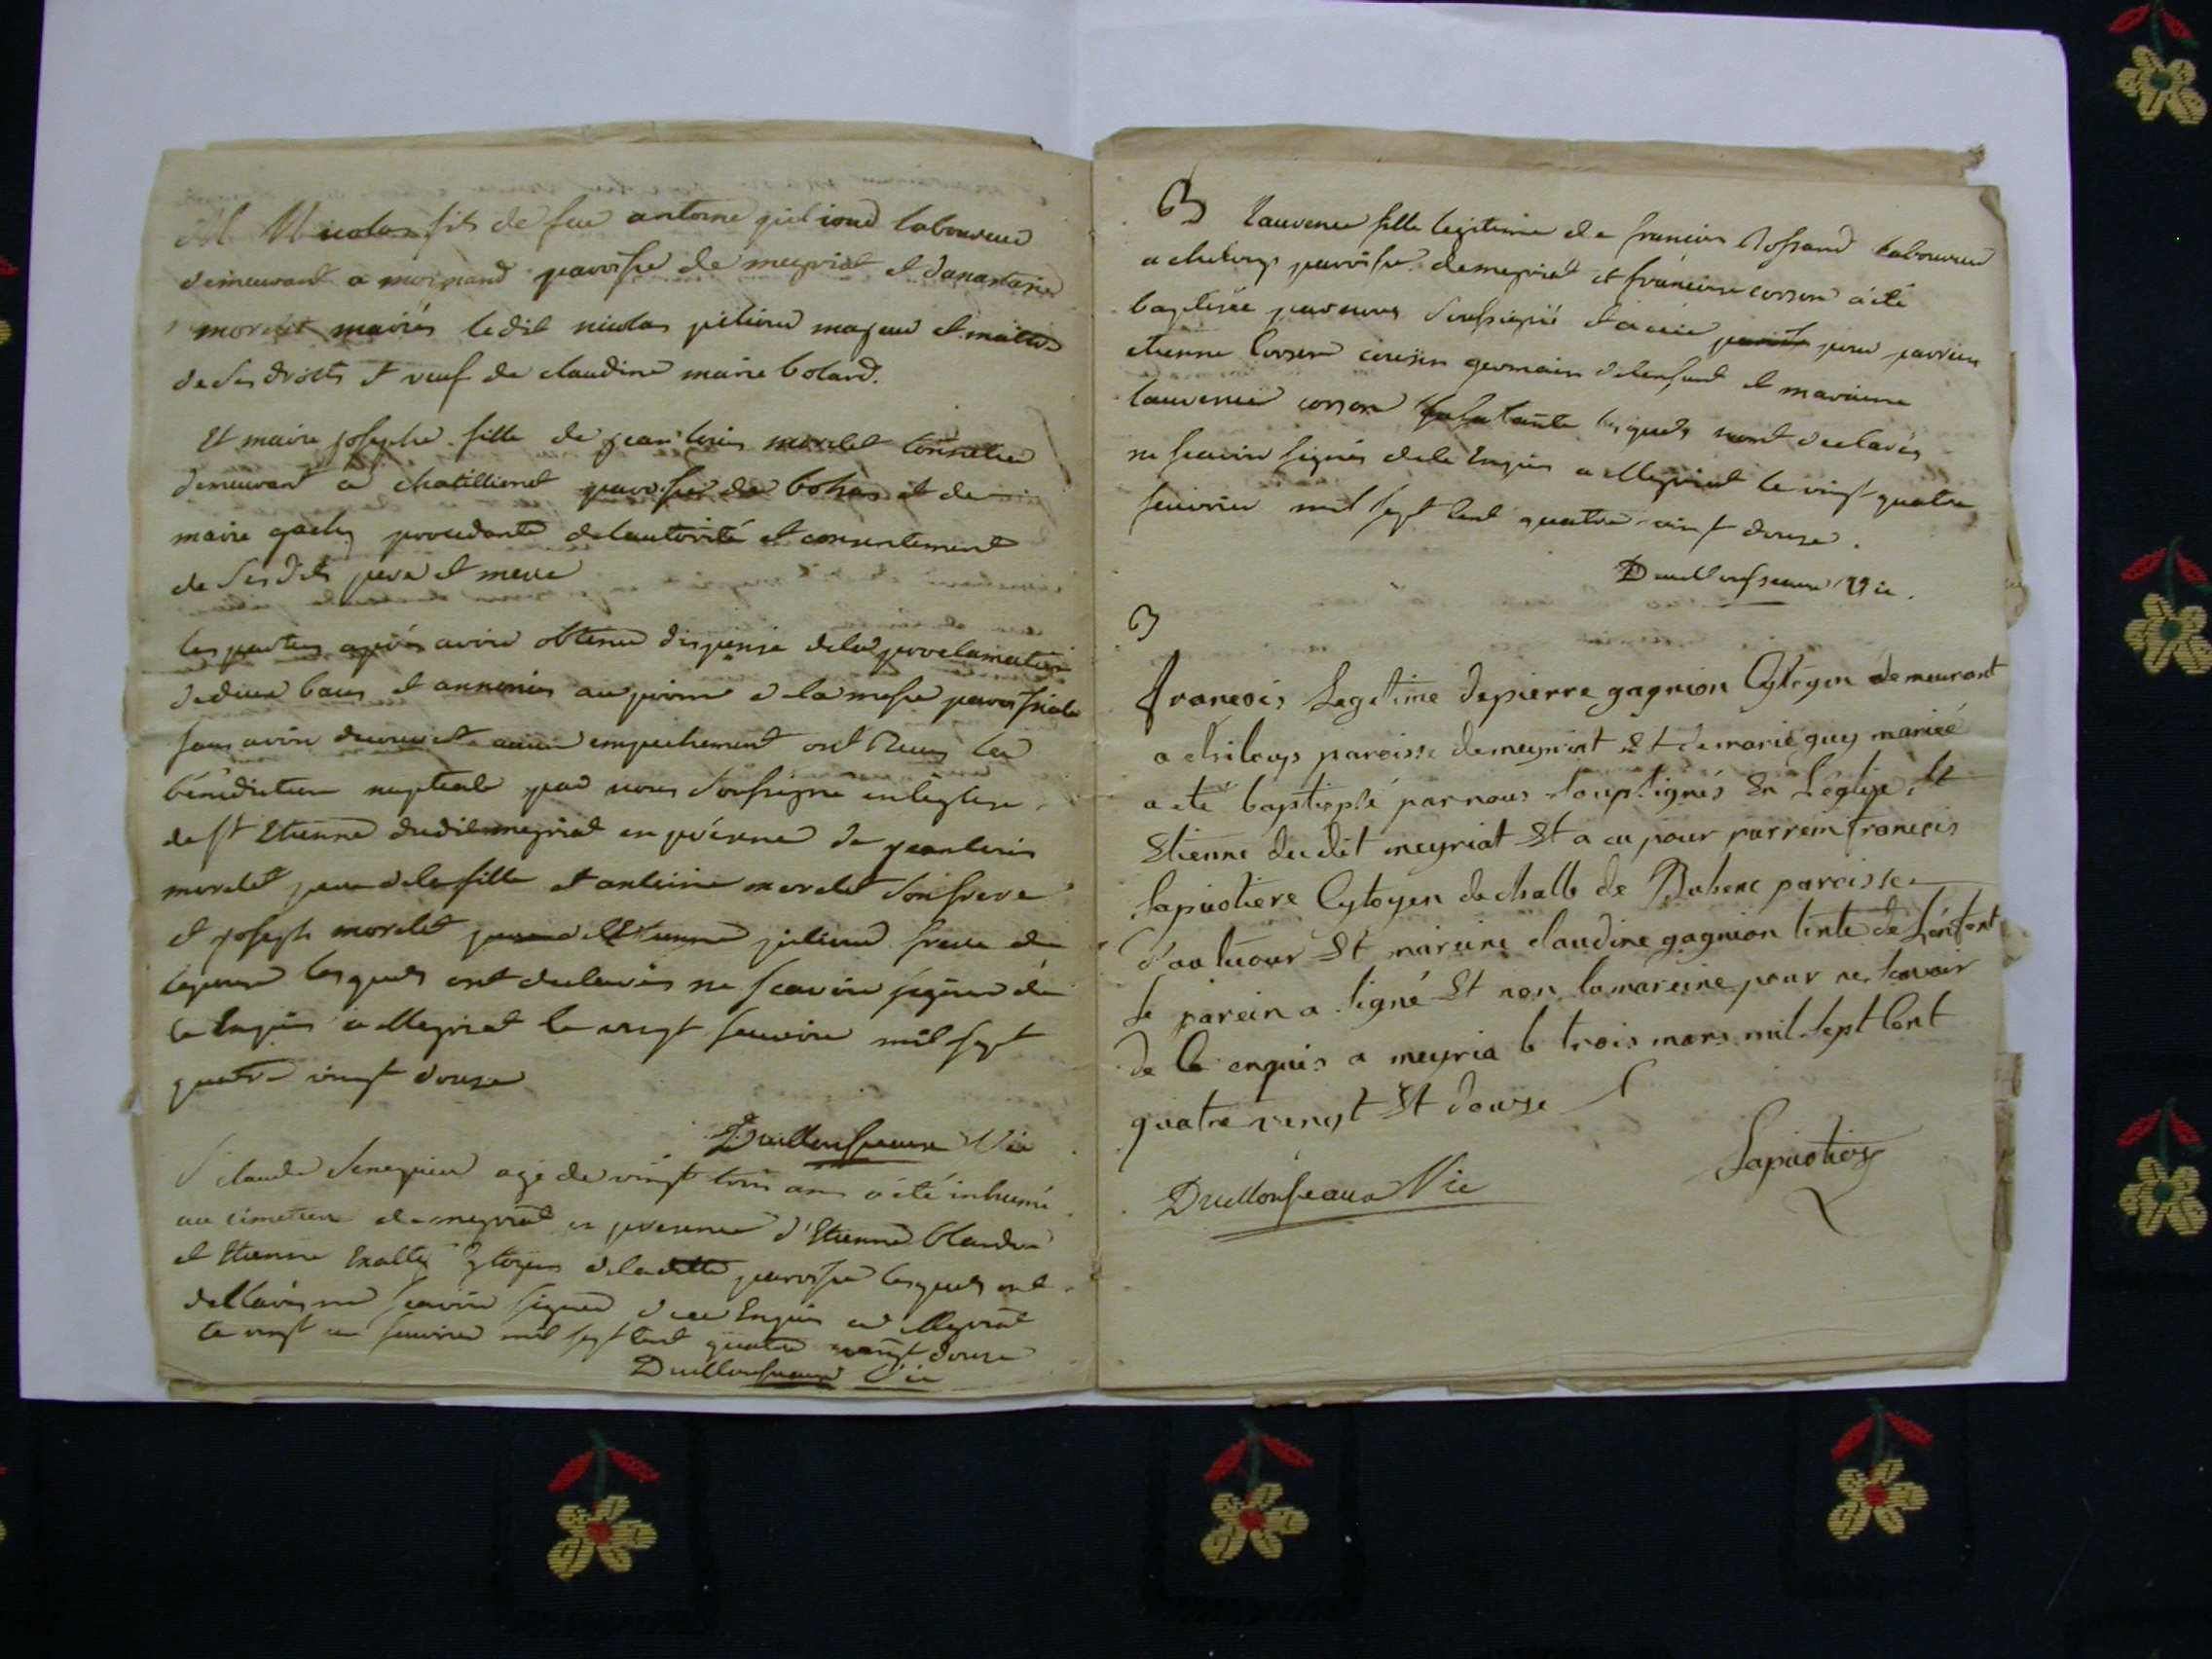 M Nicolas fils de feu antoine pelioud laboureur
demeurant a moinand paroisse de meyriat et danastasie
morelet mariés ledit nicolas majeur et maitre
de ses droits et veuf de claudine marie bolard.
Et marie josephe fille de morelet
demeurant a chatillienet paroisse de bohas et de
marie procedante delautorité et consentement
de ses dits pere et mere
les parties après avoir obtenu dispense dela proclamation
de deux bans et annoncés au prone de la messe paroissiale
sans avoir decouvert aucun empechement ont Reçus la
bénédiction nuptiale par nous soussigné en leglise
de st Etienne dudit meyriat en présence de
morelet pere dela fille et antoine morelet son frere
et joseph morelet et etienne frere de
lepoux lesquels ont declarés ne scavoir signer de
ce Enquis a Meyriat le vingt fevrier mil sept
quatre vingt douze
Duillonseaux Vic
S claude agé de vingt trois ans a été inhumé
au cimetiere de meyriat en presence d'Etienne blandin
et Etienne Cytoyens deladitte paroisse lesquels ont
dellarés ne scavoir signer de ce Enquis a Meyriat
le vingt un fevrier mil sept cent quatre vingt douze
Duillonseaux Vic
B laurence fille legitime de francois Rossand laboureur
a chiloup paroisse demeyriat et francoise corson a été
baptisée par nous soussigné et a eue pour parrein
etienne Corson cousin germain delenfant et mareine
laurence corson sa tante lesquels nont declarés
ne scavoir signés dele Enquis a Meyriat le vingt quatre
fevrier mil sept cent quatre vingt douze.
Duillonseaux Vic.
B
francois Legitime depierre gagnion Cytoyen demeurant
a chiloup paroisse demeyriat Et demarie guy mariée
a eté baptisplé par nous soupsignés En Léglise St
Etienne du dit meyriat Et a eu pour parrein francois
lapiotiere Cytoyen de challe de Bohene paroisse
Et mareine claudine gagnion tente de Lénfont
le parein a signé Et non lamareine pour ne scavoir
de le enquis a meyria le trois mars mil sept Cent
quatre vengt Et douze
Lapiotiere
Duillonseaux Vic